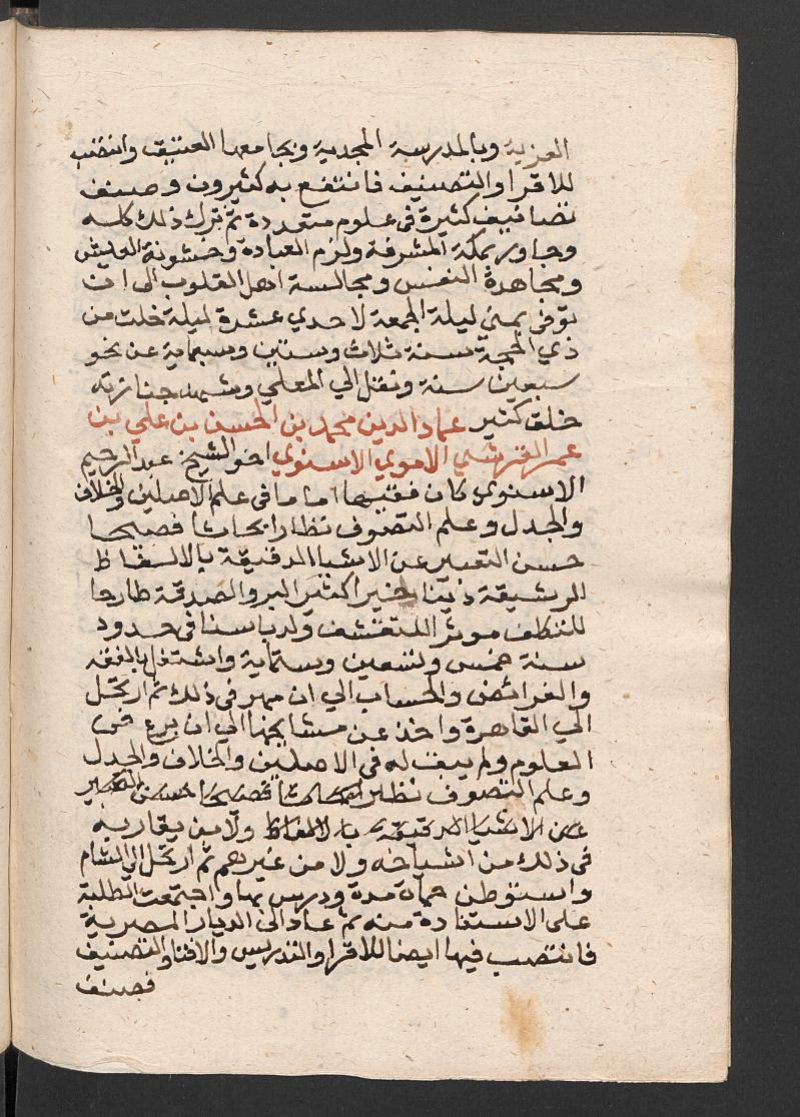 العزية وبالمدرسة المجدية وبجامعها العتيق وانتصب
للاقرا والتصنيف فانتفع به كثيرون وصنف
تصانيف كثيرة فى علوم متعددة ثم ترك ذلك كله
وجاور بمكة المشرفة ولزم العبادة وخشونة العيش
ومجاهدة النفس ومجالسة اهل القلوب الى ان
توفى بمنى ليلة الجمعة لاحدي عشرة ليلة خلت من
ذي الحجة سنة ثلاث وستين وسبماية عن نحو
سبعين سنة ونقل الي المعلي وشهد جنازته
خلق كثير عماد الدين محمد بن الحسن بن علي بن
عمر القرشي الاموي الاسنوي اخو الشيخ عبد الرحيم
الاسنوى كان فقيها اماما فى علم الاصلين والخلاف
والجدل وعلم التصوف نظارا بحاثا فصيحا
حسن التعبير عن الاشيا الدقيقة بالالفاظ
الرشيقة دينا خيرا كثير البر والصدقة طارحا
للتكلف موثرا للتقشف ولد باسنا فى حدود
سنة خمس وتسعين وستماية واشتغل بها بالفقه
والفرائض والحساب الي ان مهر فى ذلك ثم ارتحل
الي القاهرة واخذ عن مشايخها الي ان برع فى
العلوم ولم يبق له فى الاصلين والخلاف والجدل
وعلم التصوف نظير بحاثا فصيحا حسن التعبير
عن الاشيا الدقيقة بالالفاظ ولا من يقاربه
فى ذلك من اشياخه ولا من غيرهم ثم ارتحل الي الشام
واستوطن حماة مدة ودرس بها واجتمعت الطلبة
على الاستفادة منه ثم عاد الى الديار المصرية
فانتصب فيها ايضا للاقرا والتدريس والافتا والتصنيف
فصنف